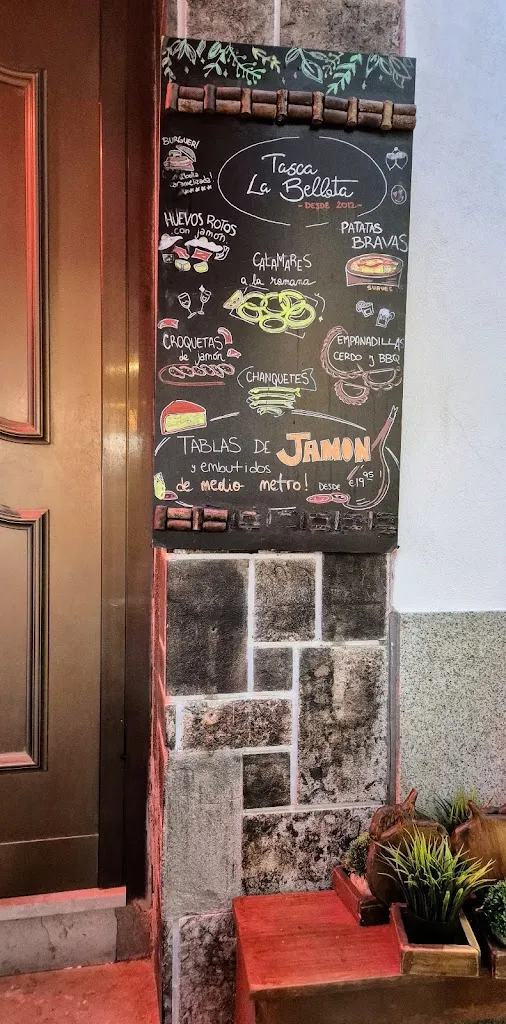 BURGUER!
caramelizada!
Tasca
La Bellota
- DESDE 2012 -
HUEVOS ROTOS
con jamón.
PATATAS
BRAVAS
SUAVES
CALAMARES
a la romana
CROQUETAS
de jamón
EMPANADILLAS
CERDO y BBQ
CHANQUETES
TABLAS DE JAMON
y embutidos
de medio metro! DESDE €19,95